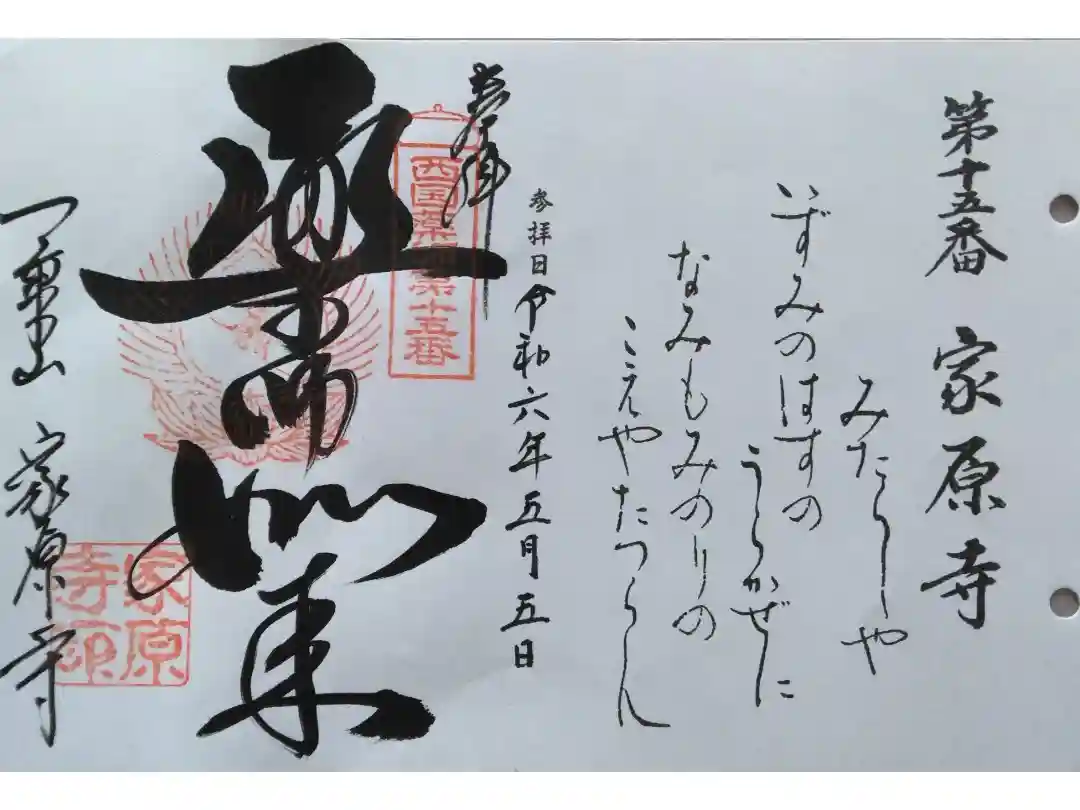 第十五番 家原寺
みたらしや
いずみのはすの
うらかぜに
なみもみのりの
こえやたつらん
参拝日令和六年五月五日
奉拝
西国薬師第十五番
薬師如来
一乗山 家原寺
家原寺印